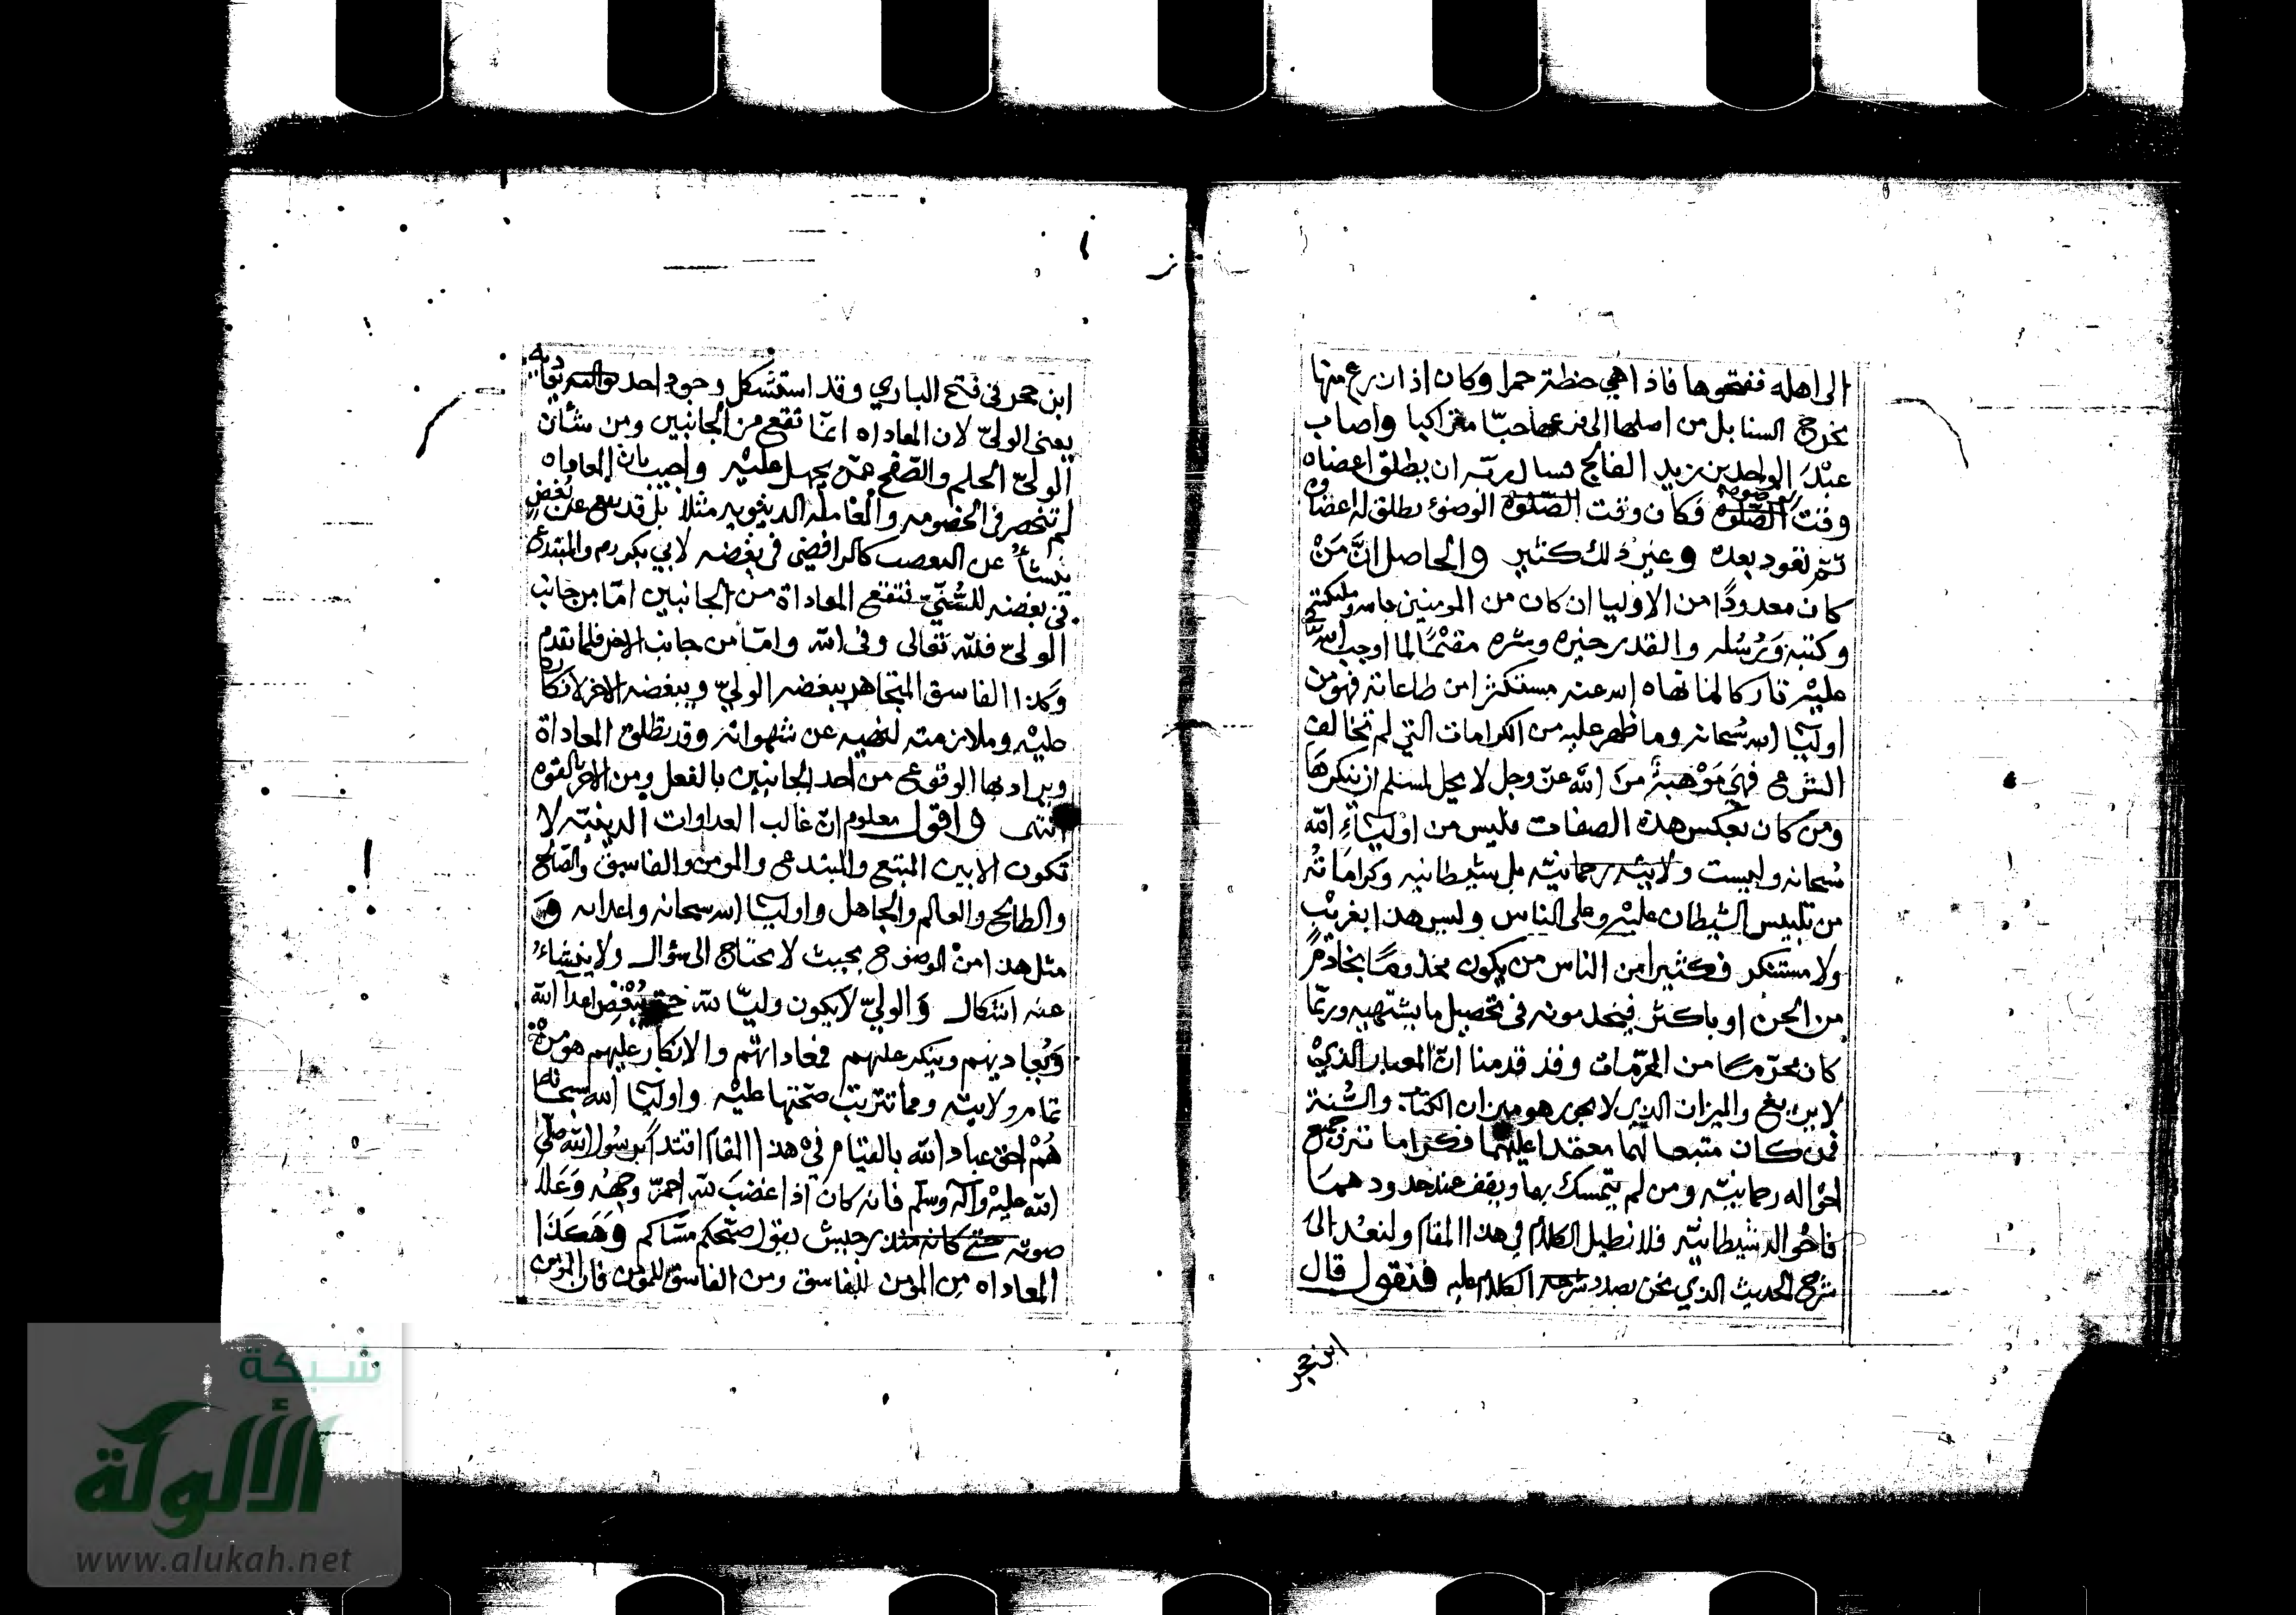 الى اهله ففتحوها فاذا هي حنطة حمرا وكان اذا زرع منها
تخرج السنابل من اصلها الى فرعها حبّا متراكبا واصاب
عبدَ الواحد بن زيد الفالج فسال ربّه ان يطلق اعضاه
وقت الصّلوة فكان وقت الوضوء يطلق له اعضاه
ثم تعود بعده وغير ذلك كثير والحاصل انَّ مَنْ
كان معدودًا من الاوليا ان كان من المومنين بالله وملئكته
وكتبه وَرُسُله والقدر خيره وشره مقيمًا لما اوجب الله
عليه تاركا لما نهاه الله عنه مستكثرا من طاعاته فهو من
اوليا الله سُبحانه وما ظهر عليه من الكرامات التي لم تخالف
الشرع فهي مَوْهبةٌ منَ الله عزّ وجل لا يحل لمسلم ان ينكرها
ومن كان بعكس هذه الصفات فليس من اوليآءِ الله
سُبحانه وليست ولايته رحمانيّه بل شيطانيه وكرامَاتُه
من تلبيس الشيطان عليه وعلى الناس وليس هذا بغريْبٍ
ولا مستنكر فكثير من الناس من يكون مخدومًا بخادمٍ
من الجن او باكثر فيخدمونه في تحصيل ما يشتهيه وربّما
كان محرّمًا من المحرّمات وقد قدمنا انّ المعيار الذي
لا يزيغ والميزان الذي لا يجور هو ميزان الكتاب والسُّنة
فمن كان متبعا لهما معتمدا عليهما فكراماته وجميع
احْواله رحمانيّه ومن لم يتمسك بهما ويقف عند حدودهما
فاحْواله شيطانيّه فلا نطيل الكلام في هذا المقام ولنعُد الى
شرح الحديث الذي نحن بصدد شرحه الكلام عليه فنقول قال
ابن حجر
ابن حجر في فتح الباري وقد استشكل وجود احد يعاديه
يعني الوليّ لان المعاداه انمّا تقع من الجانبين ومن شأن
الوليّ الحلم والصّفح عمّن يجهل عليْه واجيب بان المعاداه
لم تنحصر في الخصومه والمعامله الدنيويه مثلا بل قد تقع عن بُغض
ينشأُ عن التعصب كالرافضي في بغضه لابي بكر رم والمبتدع
في بغضه للسُّنيّ فتقع المعاداة من الجانبين امّا من جانب
الوليّ فلله تعالى وفي الله وامّا من جانب الاخر فلما تقدم
وكذا الفاسق المتجاهر يبغضه الوليّ ويبغضه الاخر لانكاره
عليه وملازمته لنهيه عن شهواته وقد تطلق المعاداة
ويراد بها الوقوع من احد الجانبين بالفعل ومن الاخر بالقوه
انتهى واقول معلوم انّ غالب العداوات الدينيّه لا
تكون الا بين المتبع والمبتدع والمومن والفاسق والصّالح
والطالح والعالم والجاهل واوليا الله سبحانه واعدائه وَ
مثل هذا من الوضوح بحيث لا يحتاج الى سُؤال ولا ينشاءُ
عنه اشكال وَالوليّ لا يكون وليّا لله حتى يُبْغِض اعدآ الله
وَيُعاديهم وينكر عليهم فمعاداتهم والانكار عليهم هو منْ
تمام ولايته ومما تترتب صحّتها عليْه واوليا الله سبحانه
هُمْ احق عباد الله بالقيام في هذا المقام اقتدآً برسُول الله صلّى
الله عليْه وآله وسلم فانه كان اذا غضبَ لله احمرّ وجهُه وَعَلا
صوته حتى كانه منذر جيش يقول صبّحكم مسّاكم وَهَكَذَا
المعاداه من المومن للفاسق ومن الفاسق للمومن فان المومن
شبكة
الألوكة
www.alukah.net